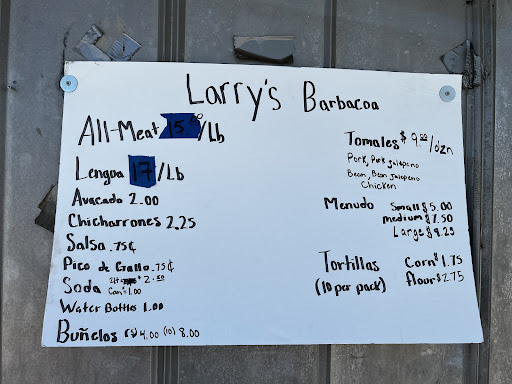 Larry's Barbacoa
All-Meat 15.00/Lb
Lengua 17/Lb
Avocado 2.00
Chicharrones 2.25
Salsa .75¢
Pico de Gallo .75¢
Soda 2lt $2.50
Can $1.00
Water Bottles 1.00
Buñelos (5) 4.00 (10) 8.00
Tomales $9.50/dzn
Pork, Pork Jalapeno
Bean, Bean Jalapeno
Chicken
Menudo Small $5.00
medium $7.50
Large $9.25
Tortillas Corn $1.75
(10 per pack) flour $2.75